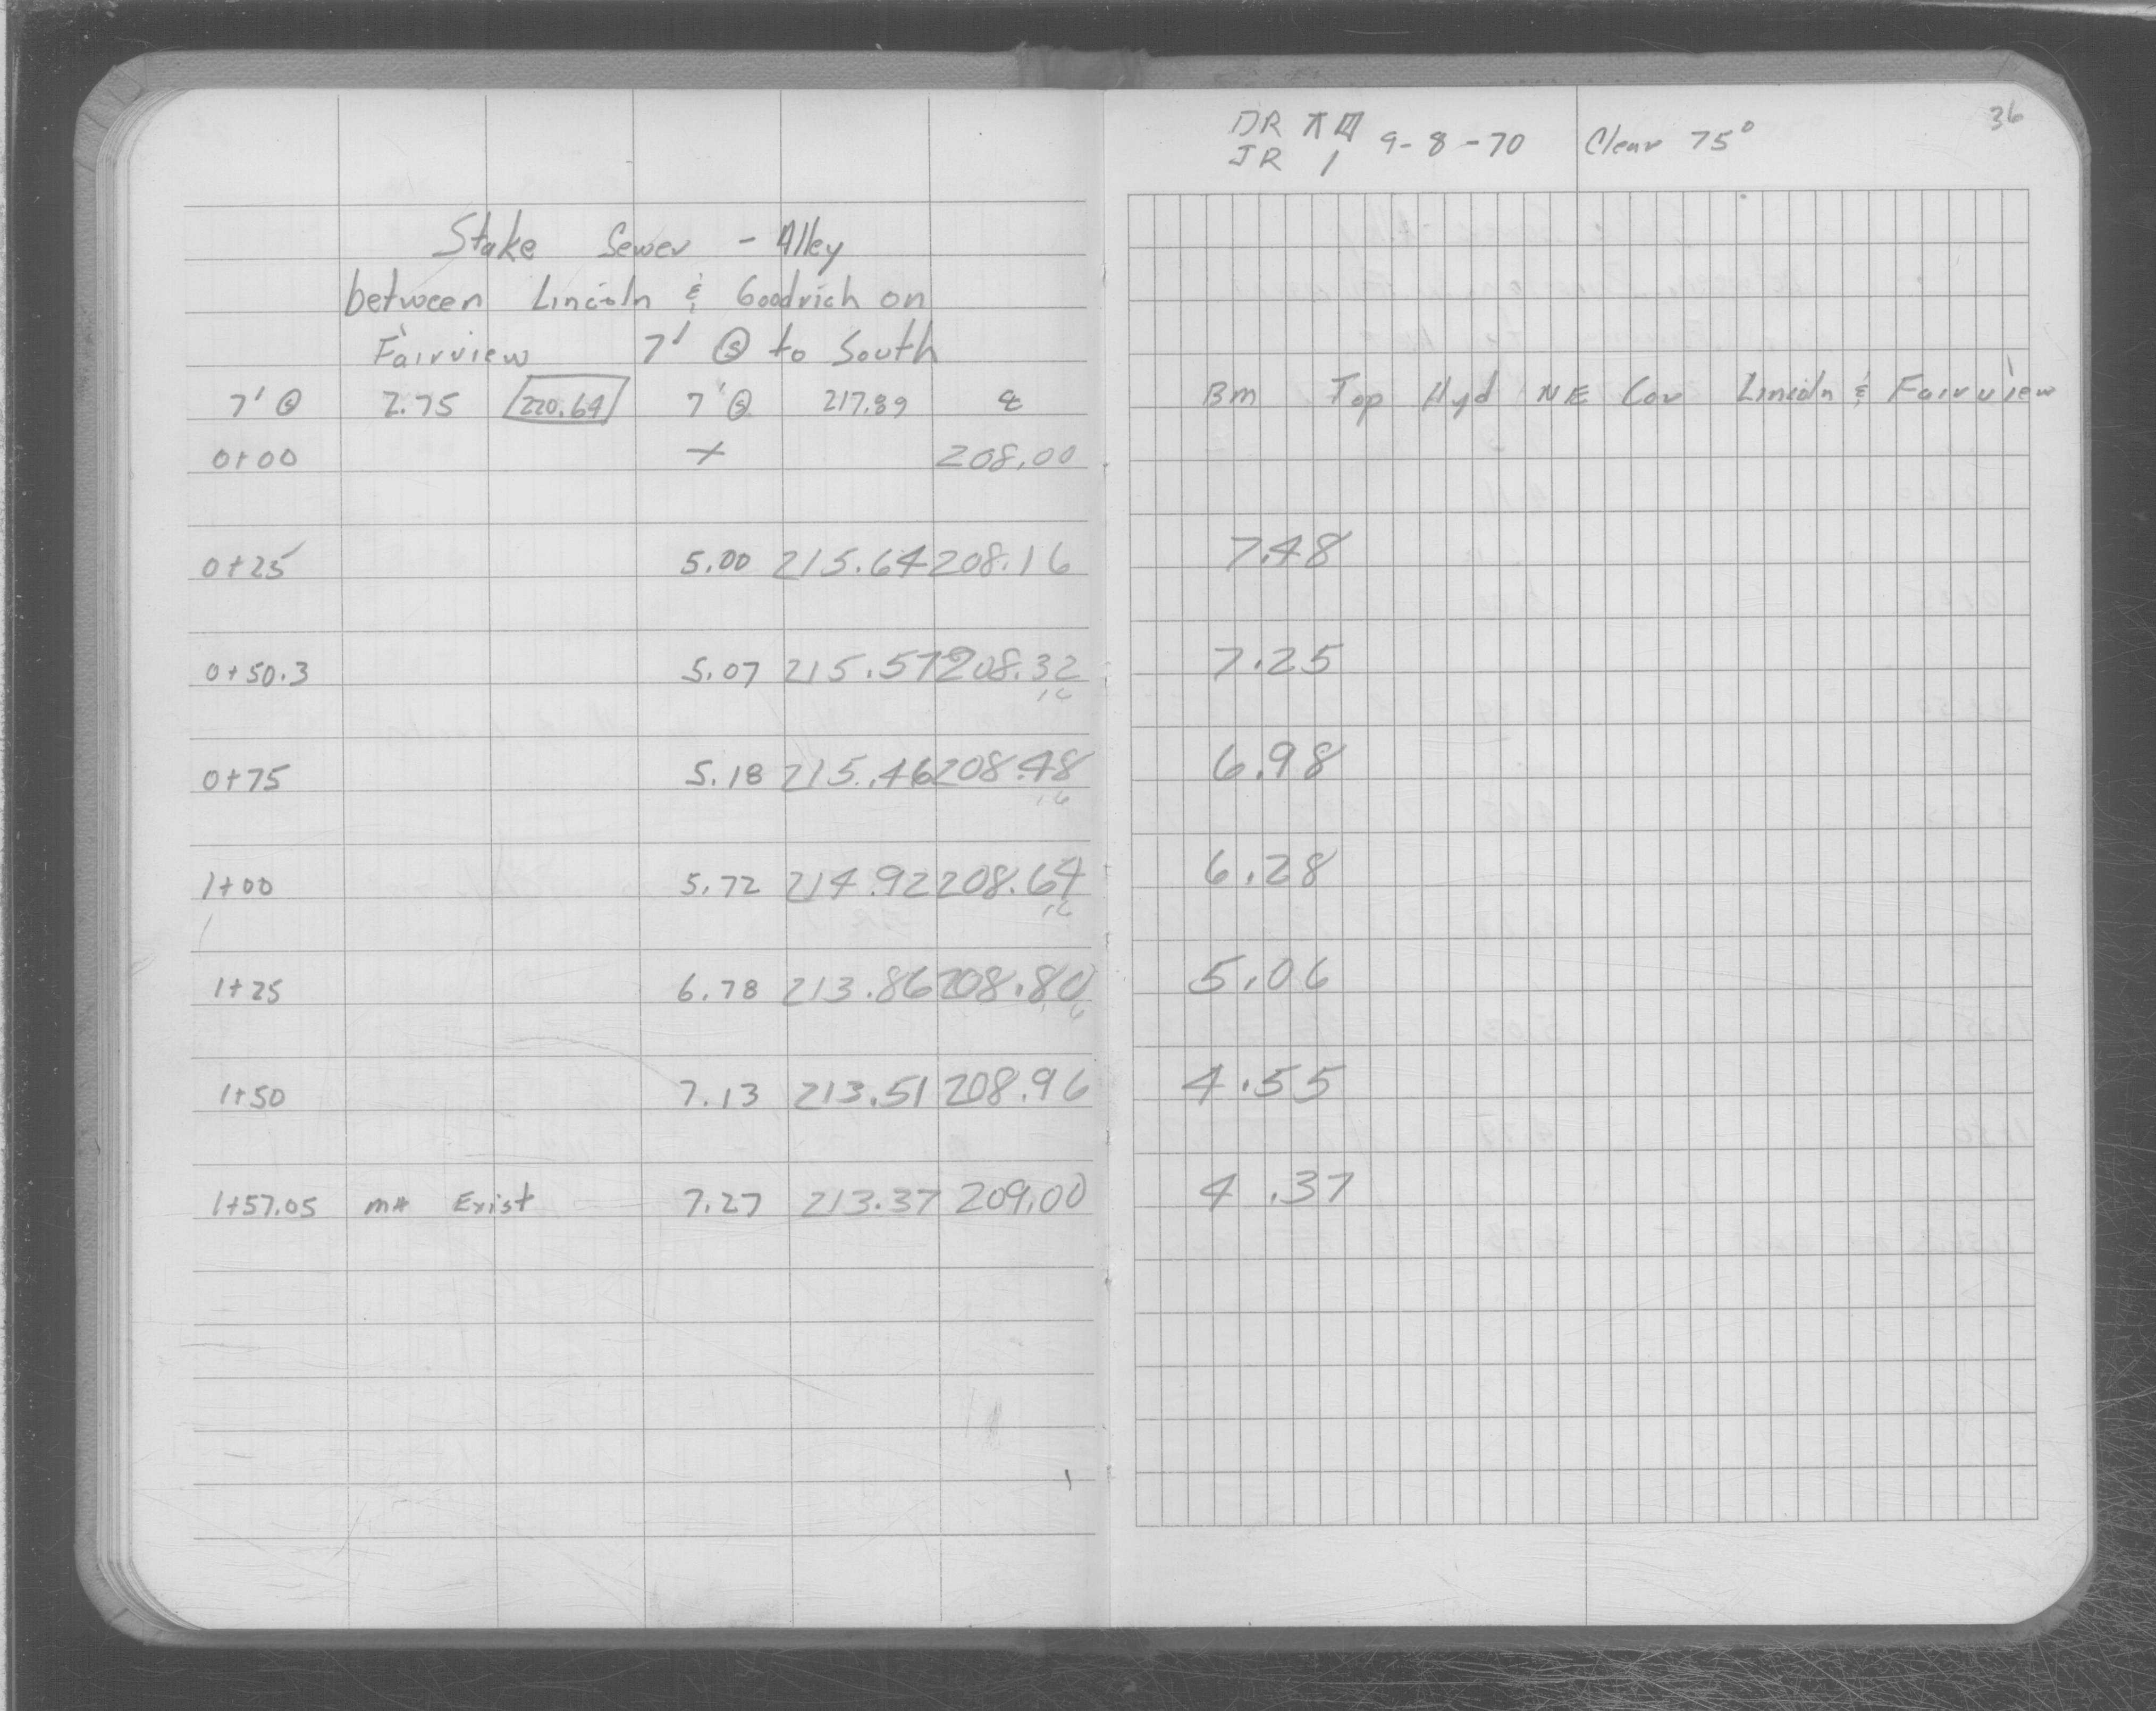 Stake Sewer - Alley
between Lincoln & Goodrich on
Fairview 7' Ⓢ to South
7' Ⓢ 2.75 220.64 7' Ⓢ 217.89 ℄
0+00 + 208.00
0+25 5.00 215.64 208.16
0+50.3 5.07 215.57 208.32
16
0+75 5.18 215.46 208.48
16
1+00 5.72 214.92 208.64
16
1+25 6.78 213.86 208.80
16
1+50 7.13 213.51 208.96
1+57.05 MH Exist 7.27 213.37 209.00
36
DR 9-8-70 Clear 75°
JR
BM Top Hyd NE Cor Lincoln & Fairview
7.48
7.25
6.98
6.28
5.06
4.55
4.37